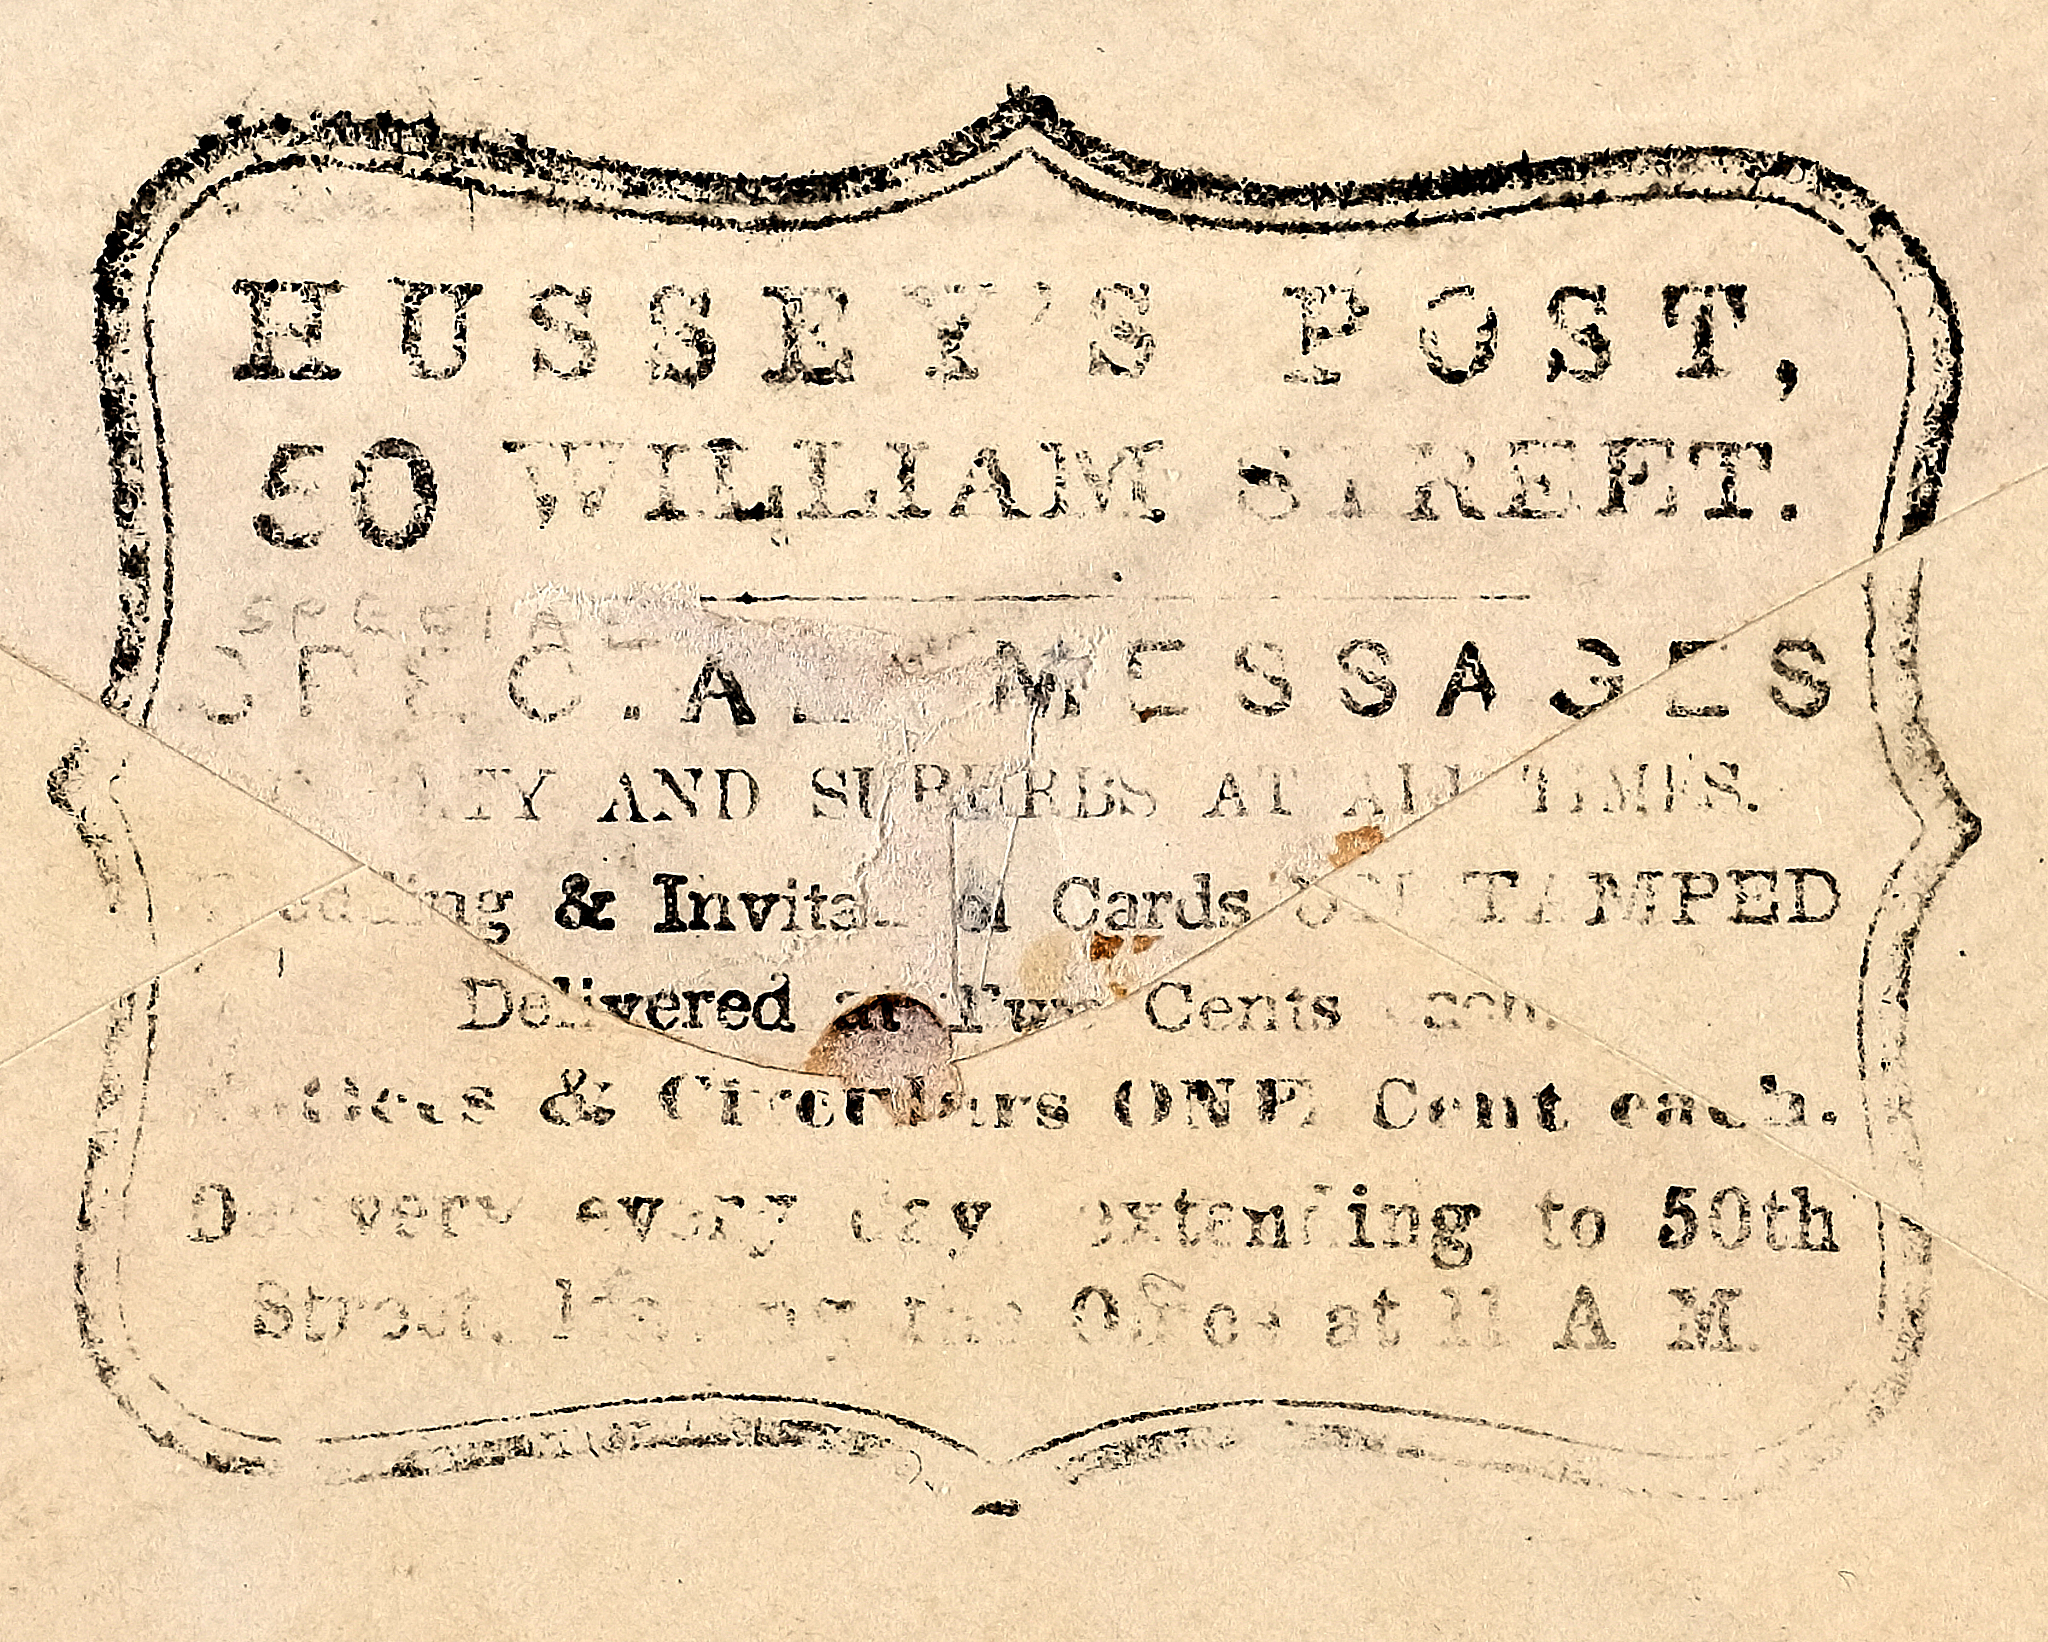 HUSSEY'S POST,
50 WILLIAM STREET.
SPECIAL MESSAGES
AND SUBURBS AT ALL TIMES.
Wedding & Invitation Cards STAMPED
Delivered at Two Cents each.
Notices & Circulars ONE Cent each.
Delivery every day extending to 50th
Street, leaving the Office at 11 A M.